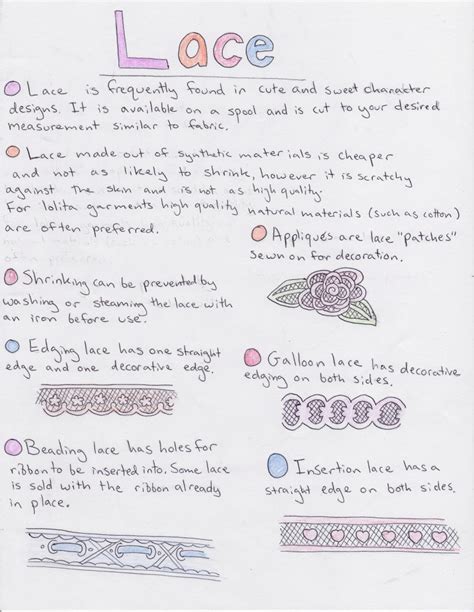 Lace
Lace is frequently found in cute and sweet character
designs. It is available on a spool and is cut to your desired
measurement similar to fabric.
Lace made out of synthetic materials is cheaper
and not as likely to shrink, however it is scratchy
against the skin and is not as high quality.
For lolita garments high quality natural materials (such as cotton)
are often preferred.
Appliqués are lace "patches"
sewn on for decoration.
Shrinking can be prevented by
washing or steaming the lace with
an iron before use.
Edging lace has one straight
edge and one decorative edge.
Galloon lace has decorative
edging on both sides.
Beading lace has holes for
ribbon to be inserted into. Some lace
is sold with the ribbon already
in place.
Insertion lace has a
straight edge on both sides.